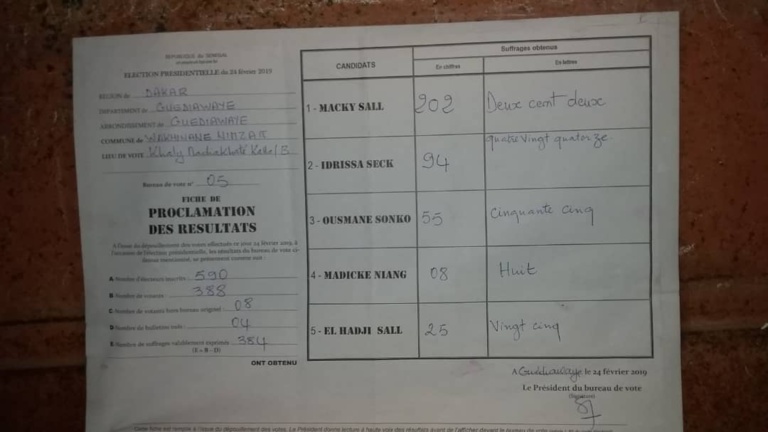 REPUBLIQUE DU SENEGAL
ELECTION PRESIDENTIELLE du 24 février 2019
REGION de DAKAR
DEPARTEMENT de GUEDIAWAYE
ARRONDISSEMENT de GUEDIAWAYE
COMMUNE de WAKHINANE NIMZAT
LIEU DE VOTE
Bureau de vote n° 05
FICHE DE
PROCLAMATION
DES RESULTATS
A l'issue du dépouillement des votes effectués ce jour 24 février 2019, à
l'occasion de l'élection présidentielle, les résultats du bureau de vote ci-
dessus mentionné, se présentent comme suit :
A Nombre d'électeurs inscrits : 590
B Nombre de votants : 388
C Nombre de votants hors bureau originel : 08
D Nombre de bulletins nuls : 04
E Nombre de suffrages valablement exprimés : 384
(E = B - D)
ONT OBTENU
CANDIDATS
Suffrages obtenus
En chiffres
En lettres
1 - MACKY SALL 202 Deux cent deux
2 - IDRISSA SECK 94 quatre vingt quatorze
3 - OUSMANE SONKO 55 Cinquante cinq
4 - MADICKE NIANG 08 Huit
5 - EL HADJI SALL 25 Vingt cinq
A Guédiawaye le 24 février 2019
Le Président du bureau de vote
(Signature)